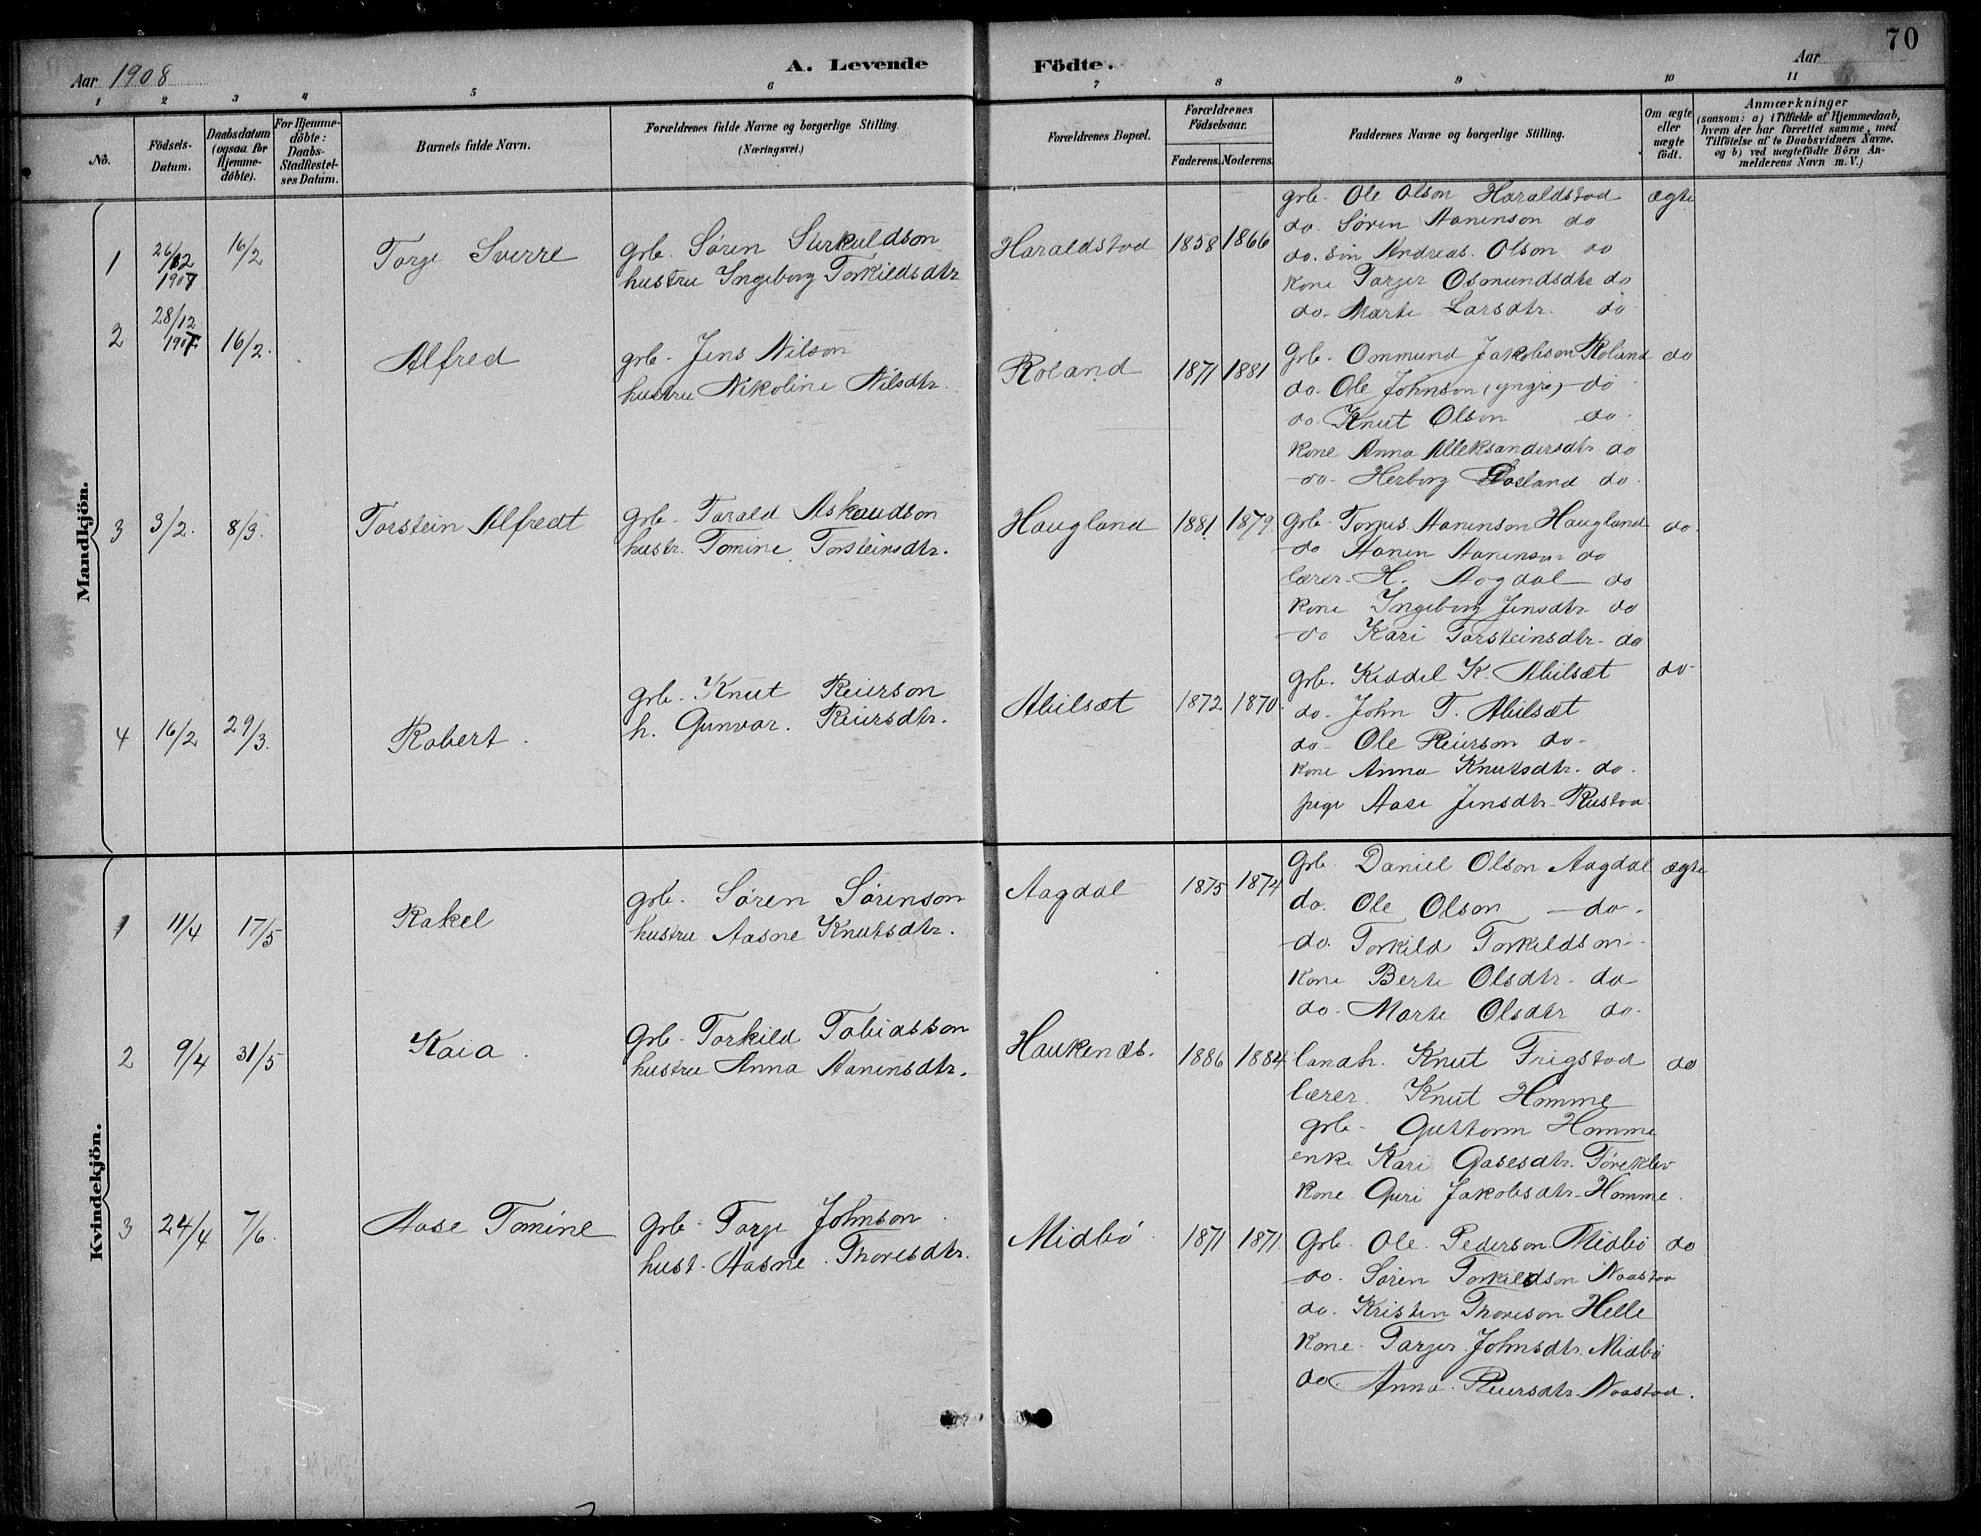 70
Aar 1908
A. Levende Födte.
Aar
1 2 3 4 5 6 7 8 9 10 11
No.
Födsels-Datum.
Daabsdatum (ogsaa for Hjemme-döbte).
For Hjemme-döbte: Daabs-Stadfæstel-ses Datum.
Barnets fulde Navn.
Forældrenes fulde Navne og borgerlige Stilling. (Næringsvei.)
Forældrenes Bopæl.
Forældrenes Födselsaar.
Faderens. Moderens.
Faddernes Navne og borgerlige Stilling.
Om ægte eller uægte födt.
Anmærkninger
(saasom: a) i Tilfælde af Hjemmedaab, hvem der har forrettet samme, med Tilföielse af to Daabsvidners Navne. og b) ved uægtefödte Börn An-melderens Navn m. V.)
Mandkjön.
1 26/12 1907 16/2 Torje Sverre
grb. Søren Sirkuldson
hustru Ingeborg Torkildsdtr
Haraldstod 1858 1866
grb. Ole Olson Haraldstod ægte
do. Søren Aanenson do
do. søn Andreas Olson do
kone Torjer Osmundsdtr do
do. Marte Larsdtr. do
2 28/12 1907 16/2. Alfred
grb. Jens Nilson
hustru Nikoline Nilsdtr.
Roland 1871 1881
Grb. Ommund Jakobson Roland do
do. Ole Johnson (yngre) do
do. Knut Olson do.
kone Anna Alleksandersdtr do
do. Herborg Rosland do.
3 3/2. 8/3. Torstein Alfredt
grb. Tarald Askaudson
hustr. Tomine Torsteinsdtr.
Haugland 1881 1879.
Grb. Torjus Aanenson Haugland do.
do Aanen Aanenson do
lærer H. Aagdal do
kone Ingeborg Jensdtr do
do Kari Torsteinsdtr. do
4 16/2 29/3. Robert.
grb. Knut Reierson
h. Gunvor. Reiersdtr.
Abilsæt 1872 1870.
grb. Kiddel K. Abilsæt do
do. John T. Abilsæt
do. Ole Reierson do.
kone Anna Knutsdtr. do.
pige Aase Jensdtr. Rustod
Kvindekjön.
1 11/4 17/5 Rakel
grb. Søren Sørenson
hustru Aasne Knutsdtr.
Aagdal 1875 1874
Grb. Daniel Olson Aagdal ægte
do. Ole Olson do.
do. Torkild Torkildson
kone Berte Olsdtr. do
do. Marte Olsdtr do.
2 9/4 31/5 Kaia.
Grb. Torkild Tobiasson
hustru Anna Aanensdtr.
Haukenæs. 1886 1884
landh. Knut Frigstad do
lærer. Knut Homme
grb. Guttorm Homme
enke Kari Gasesdtr. Føreklev
kone Guri Jakobsdtr. Homme.
3 24/4 7/6. Aase Tomine
grb. Torje Johnson
hust. Aasne. Thoresdtr.
Midbø 1871 1871
Grb. Ole Pederson Midbø do
do. Søren Torkildson Naastod
do. Kristen Thoreson Helle
kone. Torjer. Johnsdtr. Midbø
do. Anna. Reiersdtr. Naastod.